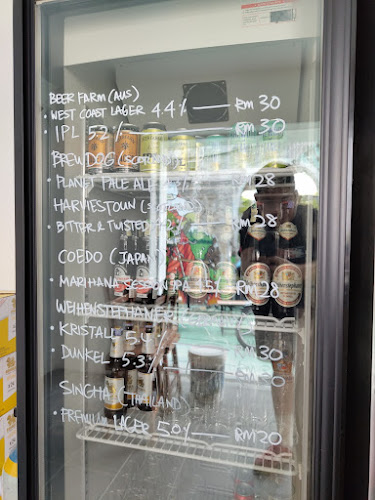 BEER FARM (AUS)
• WEST COAST LAGER 4.4% — RM 30
• IPL 5.2% — RM 30
BREWDOG (SCOTLAND)
• PLANET PALE ALE — 28
HARVIESTOUN
• BITTER & TWISTED 4.2% — RM 28
COEDO (JAPAN)
• MARIHANA SESSION IPA — RM 28
WEIHENSTEPHANER
• KRISTALL 5.4 — RM 30
• DUNKEL 5.3%
SINGHA (THAILAND)
• PREMIUM LAGER 5.0% — RM 20